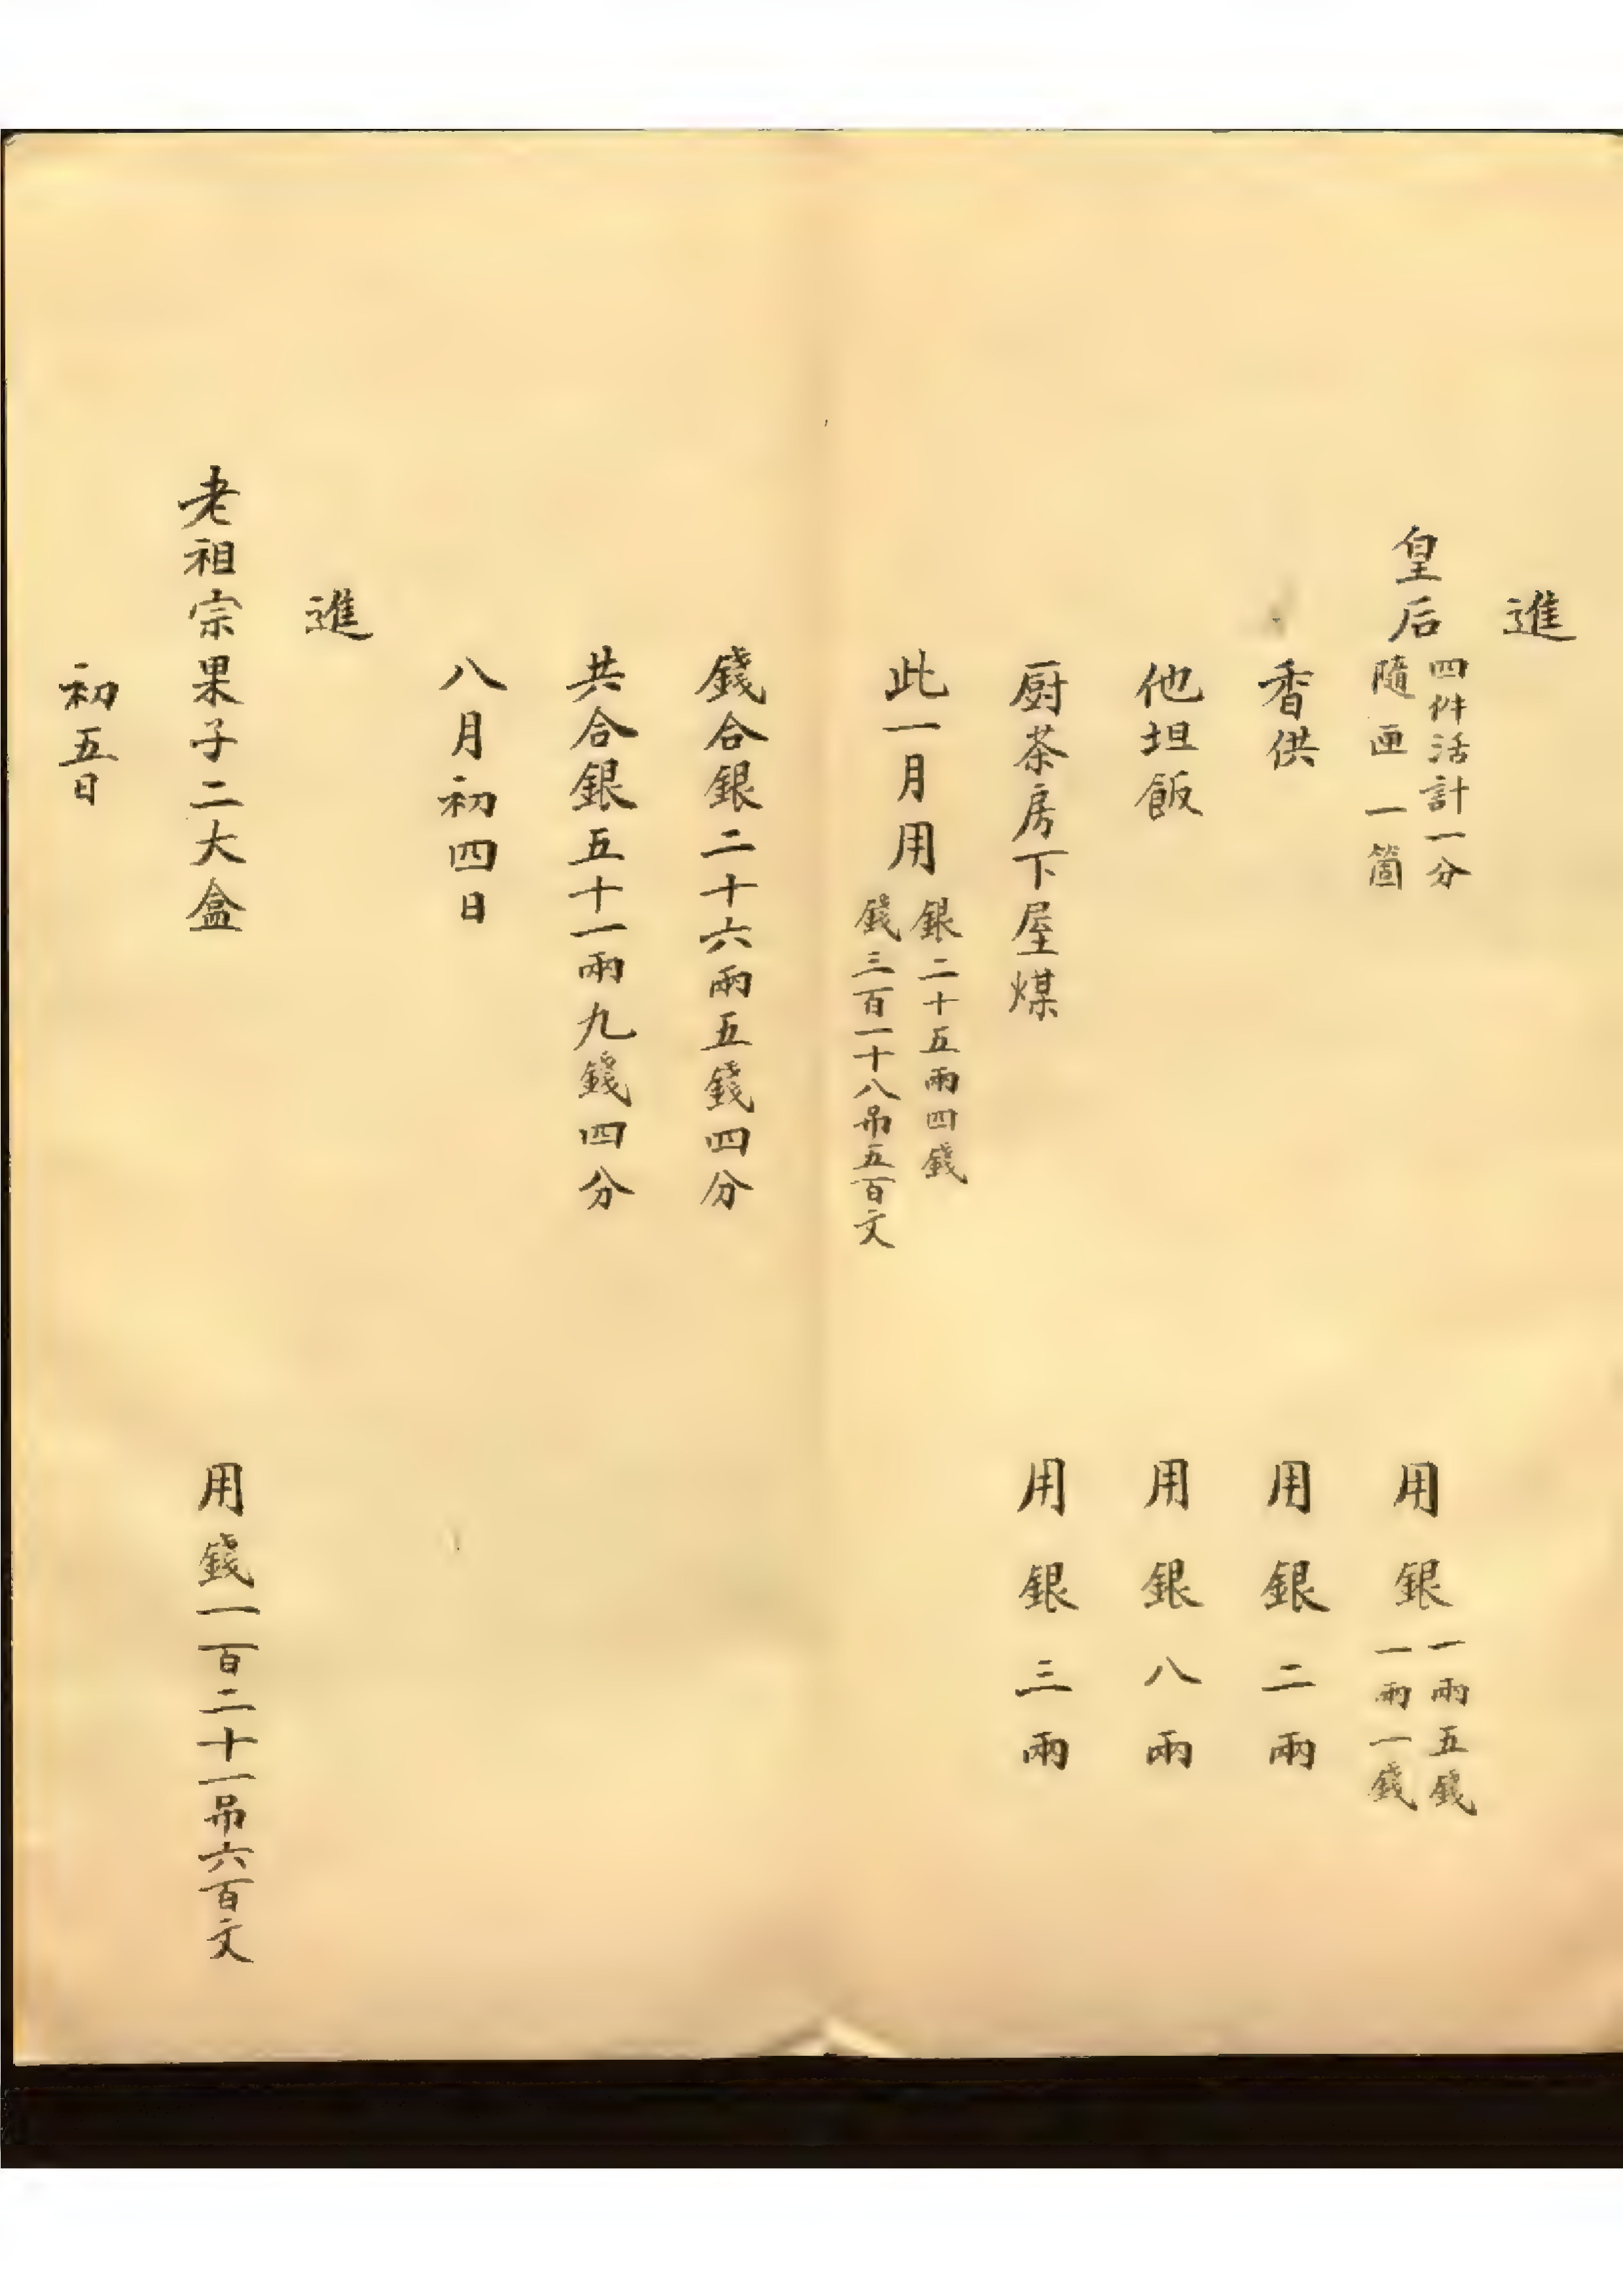 進
皇后四件活計一分隨匣一箇 用銀一兩五錢一兩一錢
香供 用銀二兩
他坦飯 用銀八兩
厨茶房下屋煤 用銀三兩
此一月用銀二十五兩四錢錢三百一十八吊五百文
錢合銀二十六兩五錢四分
共合銀五十一兩九錢四分
八月初四日
進
老祖宗果子二大盒 用錢一百二十一吊六百文
初五日